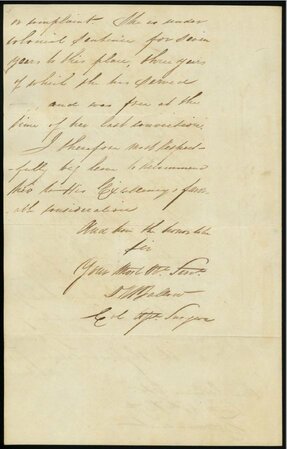 or complaint. She is under
Colonial Sentence for Seven
years to this place, three years
of which she has served
and was free at the
time of her last conviction.
I therefore most respect-
-fully beg leave to recommend
her to His Excellency's favor-
-able consideration
And have the honor to be
Sir
Your Most Obt. Servt.
Col. Ast. Surgeon